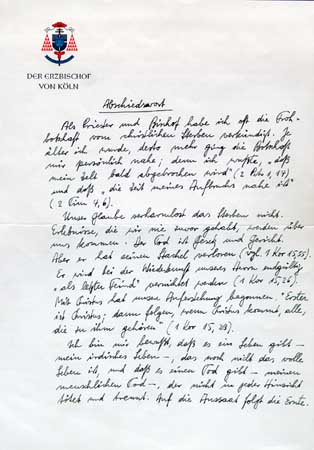 DER ERZBISCHOF
VON KÖLN
Abschiedswort
Als Priester und Bischof habe ich oft die Froh-
botschaft vom christlichen Sterben verkündigt. Je
älter ich wurde, desto mehr ging die Botschaft
mir persönlich nahe; denn ich wußte, „daß
mein Zelt bald abgebrochen wird" (2
und daß „die Zeit meines Aufbruchs nahe ist"
(2 Tim 4,6).
Unser Glaube verharmlost das Sterben nicht.
Erlebnisse, die wir nie zuvor gehabt, werden über
uns kommen. Der Tod ist und Gericht.
Aber er hat seinen Stachel verloren (vgl. 1 Kor 15,55).
Er wird bei der Wiederkunft unseres Herrn endgültig
„als letzter Feind" vernichtet werden (1 Kor 15,26).
Mit Christus hat unsere Auferstehung begonnen. „Erster
ist Christus; dann folgen, wenn Christus kommt, alle,
die zu ihm gehören" (1 Kor 15,23).
Ich bin mir bewußt, daß es ein Leben gibt –
mein irdisches Leben –, das noch nicht das volle
Leben ist, und daß es einen Tod gibt – meinen
menschlichen Tod –, der nicht in jeder Hinsicht
tötet und trennt. Auf die Aussaat folgt die Ernte.